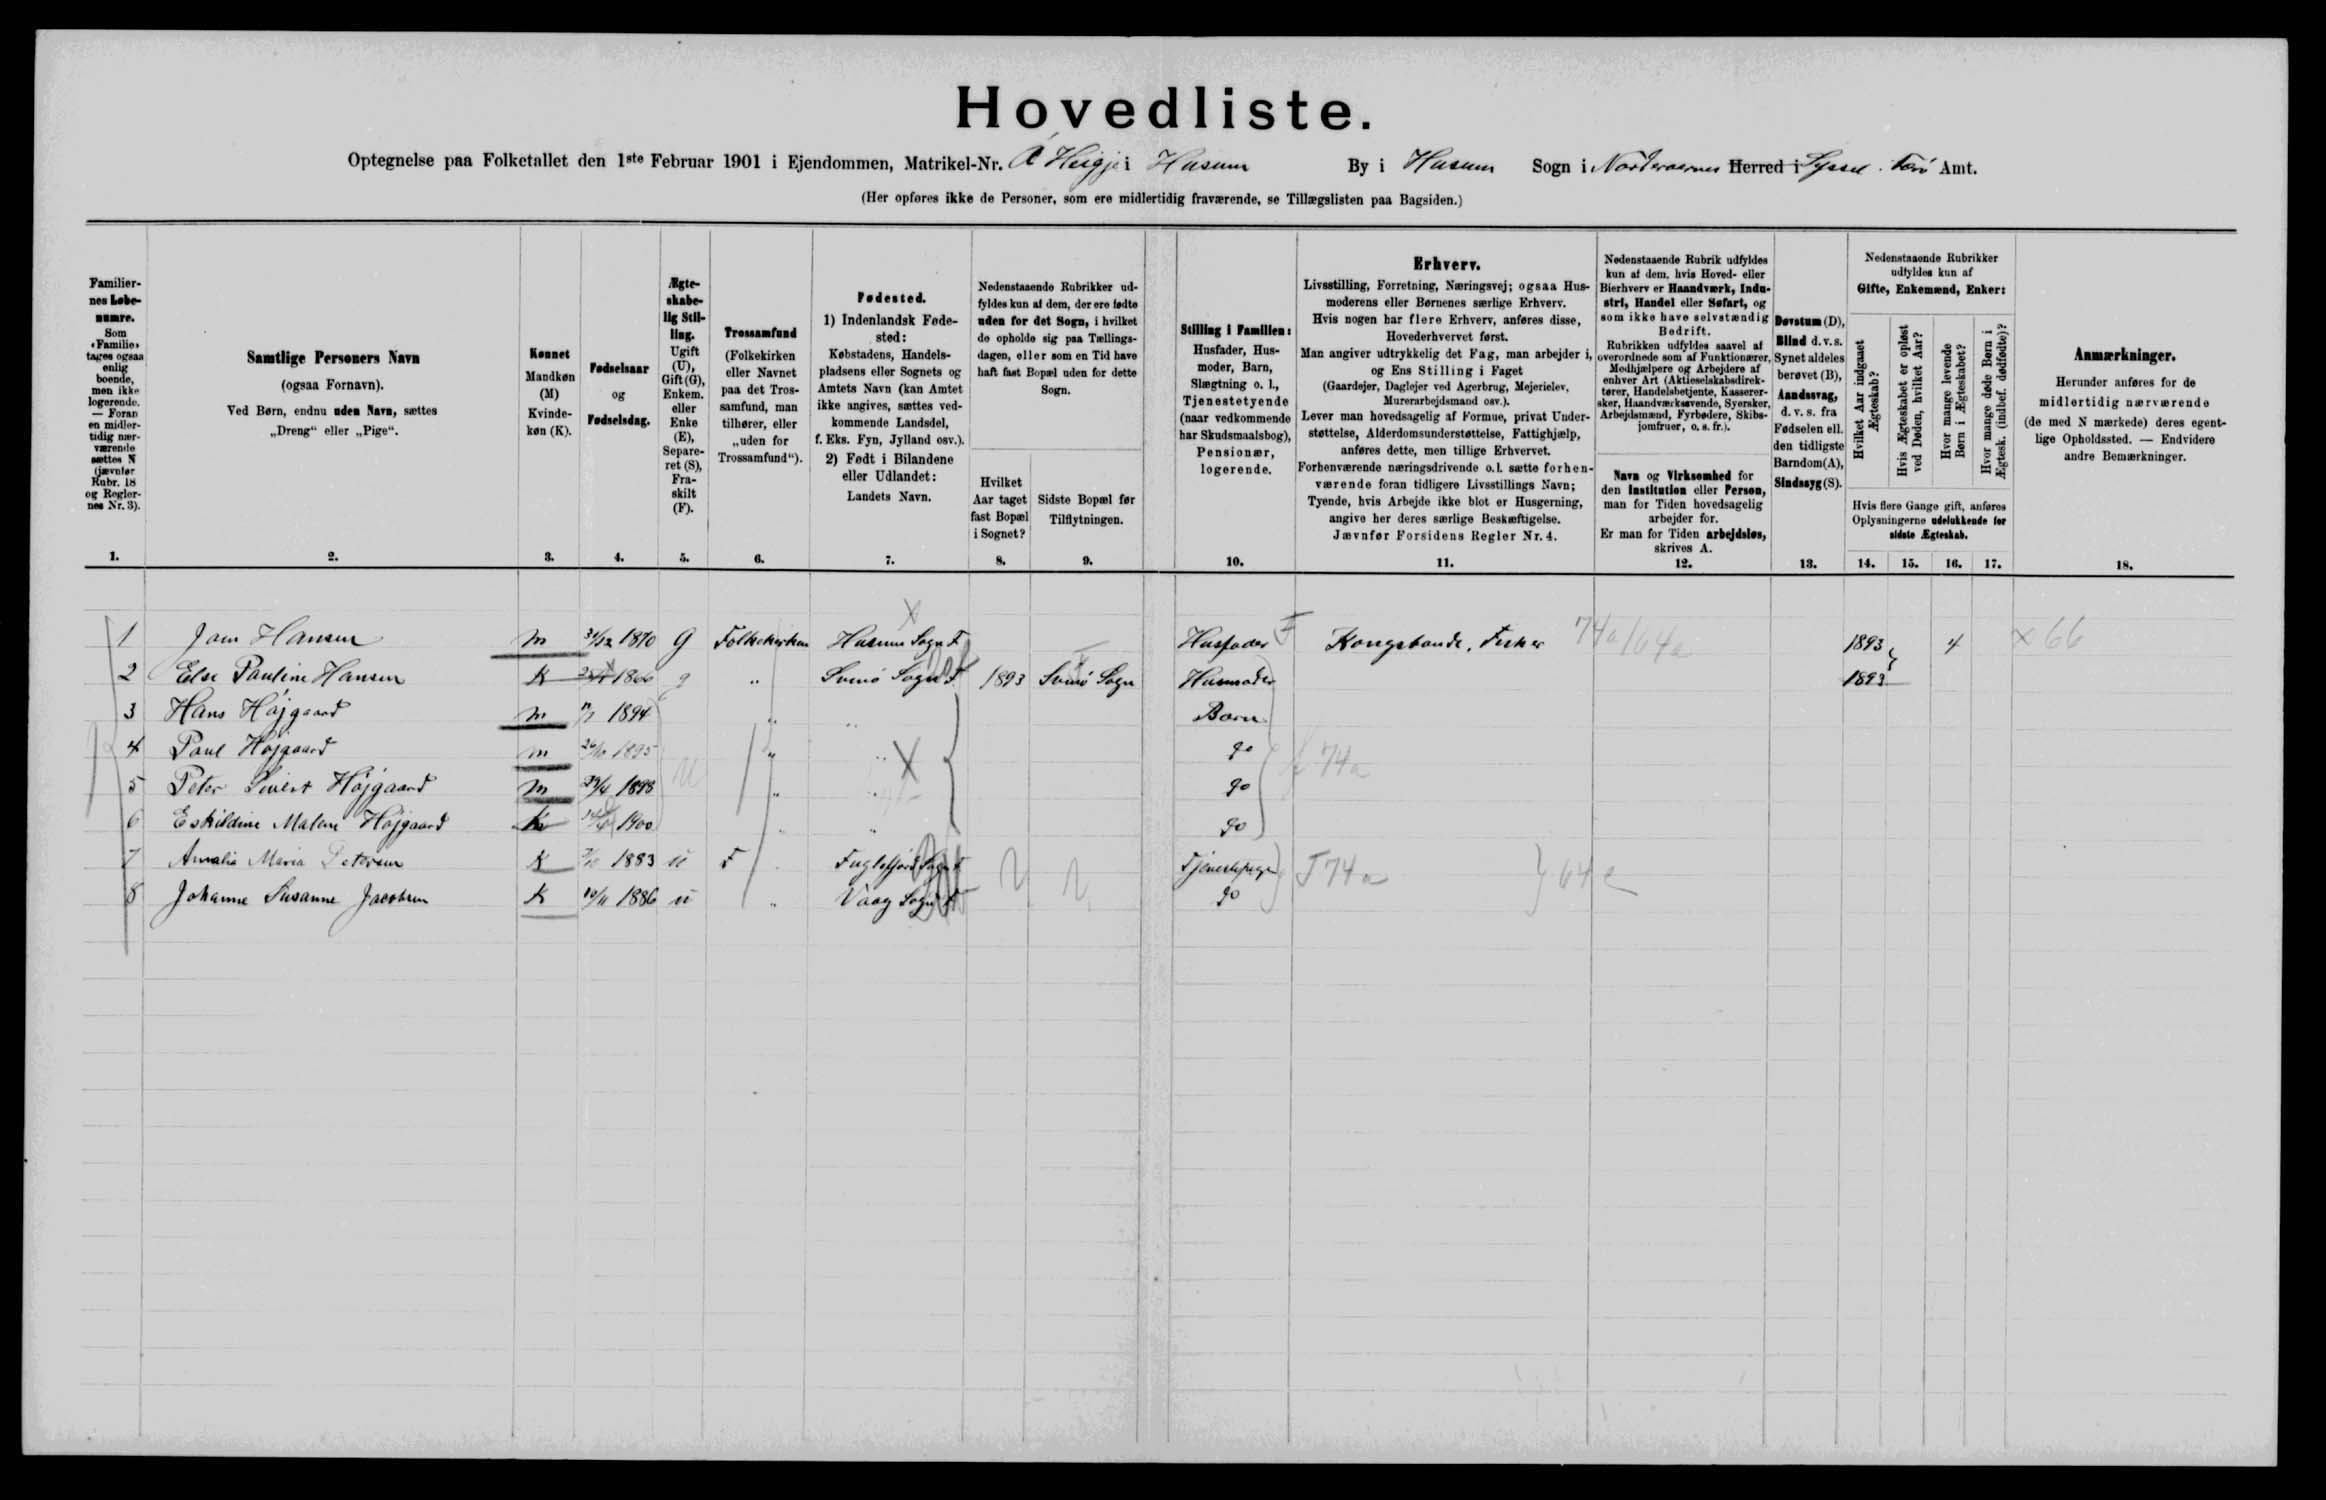 Hovedliste.
Optegnelse paa Folketallet den 1ste Februar 1901 i Ejendommen, Matrikel-Nr. A Heigji i Husum By i Husum Sogn i Norderoernes Herred i Syssel. Færö Amt.
(Her opføres ikke de Personer, som ere midlertidig fraværende, se Tillægslisten paa Bagsiden.)
Familiernes Løbenumre.
Som «Familie» tages ogsaa enlig boende, men ikke logerende. — Foran en midlertidig nærværende sættes N (jævnfør Rubr. 18 og Reglernes Nr. 3).
1.
Samtlige Personers Navn
(ogsaa Fornavn).
Ved Børn, endnu uden Navn, sættes
„Dreng“ eller „Pige“.
2.
Kønnet
Mandkøn (M)
Kvindekøn (K).
3.
Fødselsaar
og
Fødselsdag.
4.
Ægteskabelig Stilling.
Ugift (U), Gift (G), Enkem. eller Enke (E), Separeret (S), Fraskilt (F).
5.
Trossamfund
(Folkekirken eller Navnet paa det Trossamfund, man tilhører, eller „uden for Trossamfund“).
6.
Fødested.
1) Indenlandsk Fødested:
Købstadens, Handelspladsens eller Sognets og Amtets Navn (kan Amtet ikke angives, sættes vedkommende Landsdel, f. Eks. Fyn, Jylland osv.).
2) Født i Bilandene eller Udlandet:
Landets Navn.
7.
Nedenstaaende Rubrikker udfyldes kun af dem, der ere fødte uden for det Sogn, i hvilket de opholde sig paa Tællingsdagen, eller som en Tid have haft fast Bopæl uden for dette Sogn.
Hvilket Aar taget fast Bopæl i Sognet?
8.
Sidste Bopæl før Tilflytningen.
9.
Stilling i Familien:
Husfader, Husmoder, Barn, Slægtning o. l., Tjenestetyende (naar vedkommende har Skudsmaalsbog), Pensionær, logerende.
10.
Erhverv.
Livsstilling, Forretning, Næringsvej; ogsaa Husmoderens eller Børnenes særlige Erhverv.
Hvis nogen har flere Erhverv, anføres disse, Hovederhvervet først.
Man angiver udtrykkelig det Fag, man arbejder i, og Ens Stilling i Faget
(Gaardejer, Daglejer ved Agerbrug, Mejerielev, Murerarbejdsmand osv.).
Lever man hovedsagelig af Formue, privat Understøttelse, Alderdomsunderstøttelse, Fattighjælp, anføres dette, men tillige Erhvervet.
Forhenværende næringsdrivende o.l. sætte forhenværende foran tidligere Livsstillings Navn;
Tyende, hvis Arbejde ikke blot er Husgerning, angive her deres særlige Beskæftigelse.
Jævnfør Forsidens Regler Nr. 4.
11.
Nedenstaaende Rubrik udfyldes kun af dem, hvis Hoved- eller Bierhverv er Haandværk, Industri, Handel eller Søfart, og som ikke have selvstændig Bedrift.
Rubrikken udfyldes saavel af overordnede som af Funktionærer, Medhjælpere og Arbejdere af enhver Art (Aktieselskabsdirektører, Handelsbetjente, Kasserersker, Haandværkssvende, Syersker, Arbejdsmænd, Fyrbødere, Skibsjomfruer, o. s. fr.).
Navn og Virksomhed for den Institution eller Person, man for Tiden hovedsagelig arbejder for.
Er man for Tiden arbejdsløs, skrives A.
12.
Døvstum (D),
Blind d.v.s. Synet aldeles berøvet (B),
Aandssvag, d. v. s. fra Fødselen ell. den tidligste Barndom (A),
Sindssyg (S).
13.
Nedenstaaende Rubrikker udfyldes kun af
Gifte, Enkemænd, Enker:
Hvilket Aar indgaaet Ægteskab?
Hvis Ægteskabet er opløst ved Døden, hvilket Aar?
Hvor mange levende Børn i Ægteskabet?
Hvor mange døde Børn i Ægtesk. (indbef. dødfødte)?
Hvis flere Gange gift, anføres Oplysningerne udelukkende for sidste Ægteskab.
14. 15. 16. 17.
Anmærkninger.
Herunder anføres for de midlertidig nærværende (de med N mærkede) deres egentlige Opholdssted. — Endvidere andre Bemærkninger.
18.
1 Joen Hansen M 31/12 1870 G Folkekirken Husum Sogn F Husfader F Kongsbonde, Fisker 74a/64a 1893 4 x 66
2 Else Pauline Hansen K 1866 g „ Svinø Sogn F 1893 Svinø Sogn Husmoder 1893
3 Hans Højgaard M 1894 „ „ Børn
4 Poul Højgaard M 26/10 1895 „ „ do f 74a
5 Peter Sivert Højgaard M 29/4 1898 U „ „ do
6 Eskildine Malene Højgaard K 1900 „ „ do
7 Amalia Maria Petersen K 1883 U F Fuglefjord Sogn F Tjenestepige T 74a 64e
8 Johanne Susanne Jacobsen K 10/11 1886 U „ Vaag Sogn F do